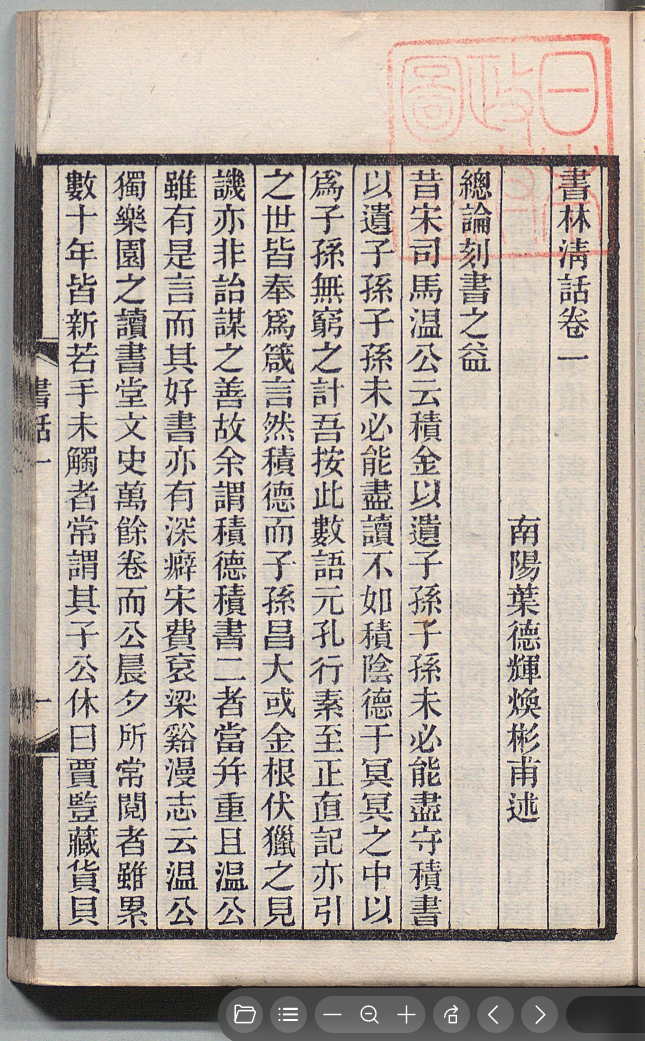 書林清話卷一
南陽葉德輝煥彬甫述
總論刻書之益
昔宋司馬溫公云積金以遺子孫子孫未必能盡守積書
以遺子孫子孫未必能盡讀不如積陰德于冥冥之中以
爲子孫無窮之計吾按此數語元孔行素至正直記亦引
之世皆奉爲箴言然積德而子孫昌大或金根伏獵之見
譏亦非詒謀之善故余謂積德積書二者當幷重且溫公
雖有是言而其好書亦有深癖宋費袞梁谿漫志云溫公
獨樂園之讀書堂文史萬餘卷而公晨夕所常閱者雖累
數十年皆新若手未觸者常謂其子公休曰賈豎藏貨貝
書話一
一